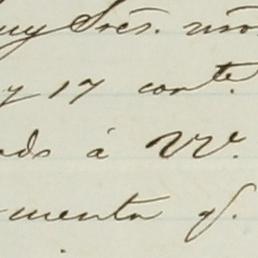 uy Sres. nro
y 17 corte.
ods á VV.
mento q.